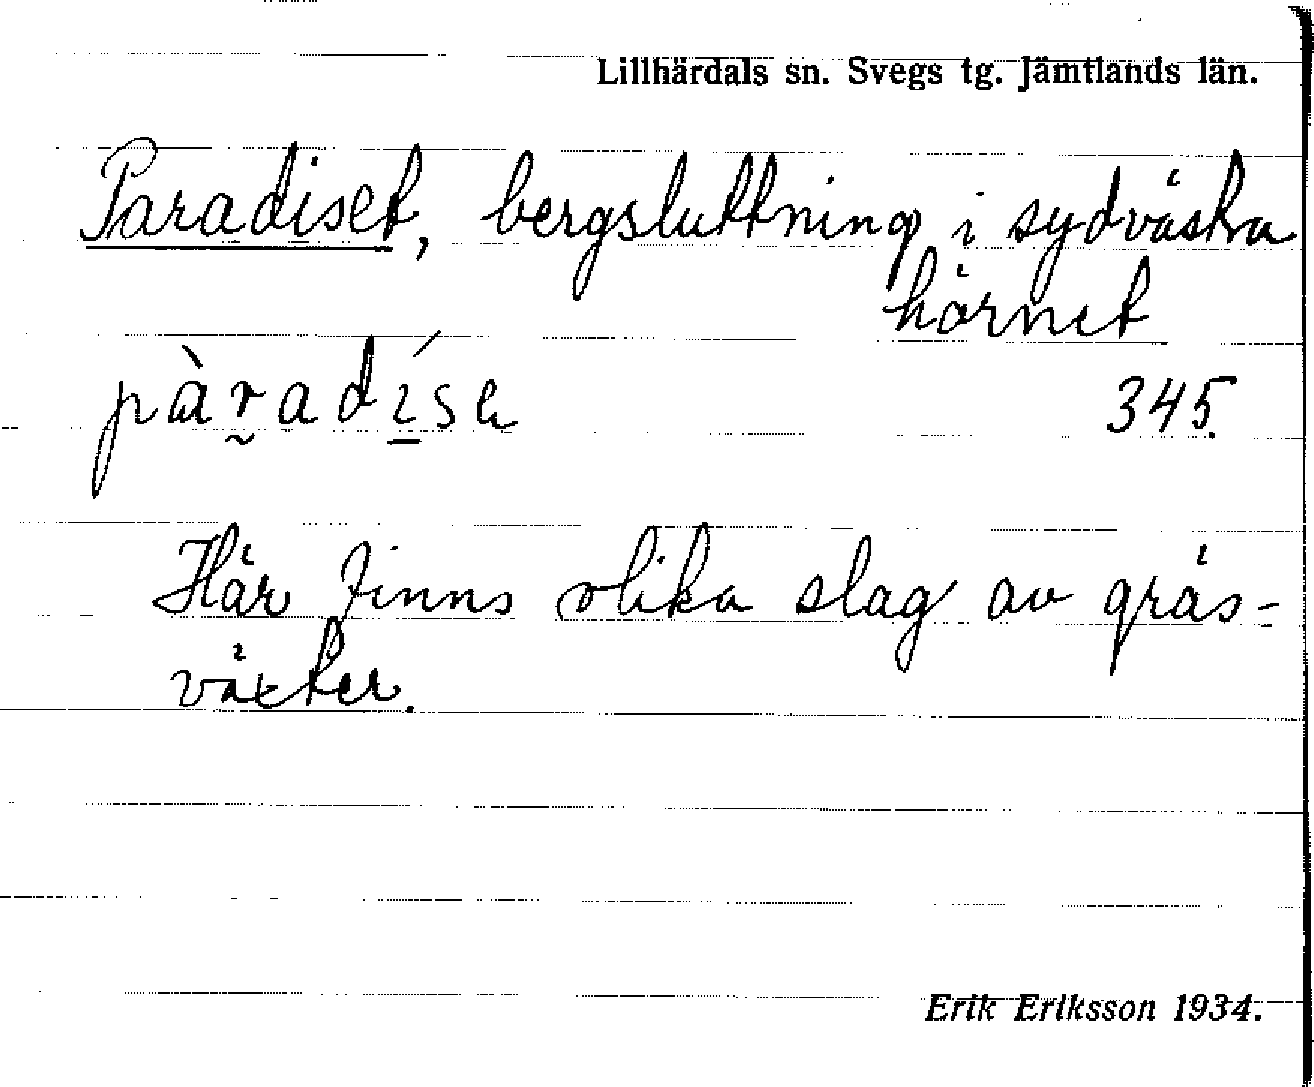 Lillhärdals sn. Svegs tg. Jämtlands län.
Paradiset, bergsluttning i sydvästra
hörnet
pàr̰adí̱sə
345.
Här finns olika slag av gräs-
växter.
Erik Eriksson 1934.